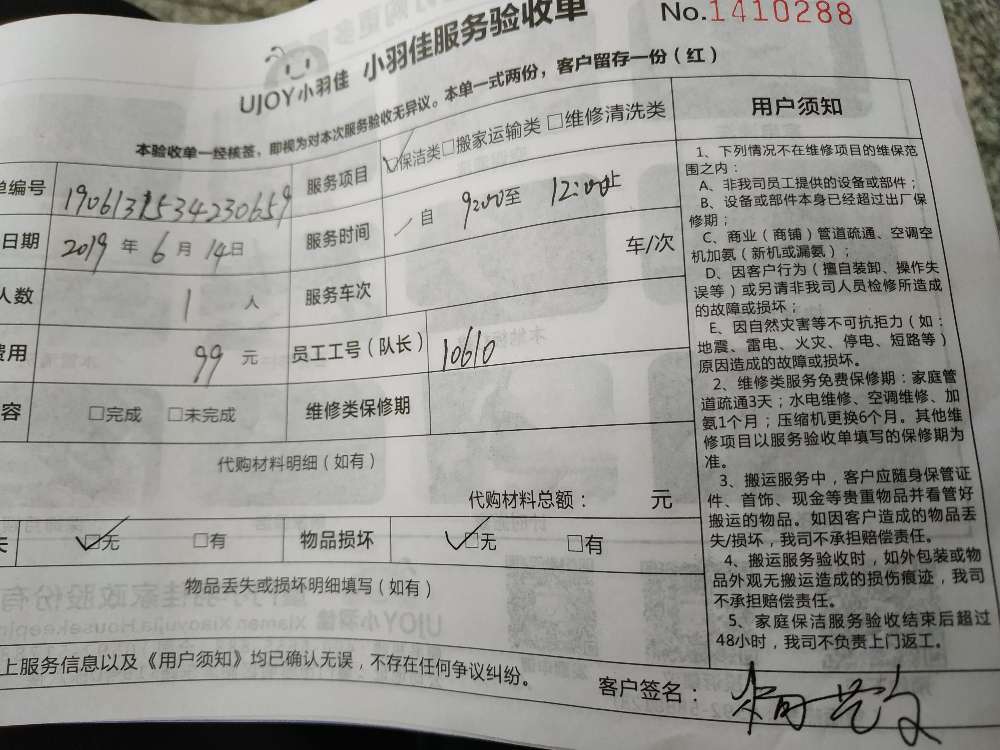 No.1410288
UJOY小羽佳 小羽佳服务验收单
本验收单一经核签，即视为对本次服务验收无异议。本单一式两份，客户留存一份（红）
单编号
服务项目 保洁类 □搬家运输类 □维修清洗类
日期 2019 年 6 月 14 日
服务时间 自 9:00 至 12:00止
人数 1 人
服务车次 车/次
费用 99 元
员工工号（队长） 10610
容 □完成 □未完成
维修类保修期
代购材料明细（如有）
代购材料总额： 元
失 □无 □有 物品损坏 □无 □有
物品丢失或损坏明细填写（如有）
上服务信息以及《用户须知》均已确认无误，不存在任何争议纠纷。
客户签名：
用户须知
1、下列情况不在维修项目的维保范
围之内：
A、非我司员工提供的设备或部件；
B、设备或部件本身已经超过出厂保
修期；
C、商业（商铺）管道疏通、空调空
机加氨（新机或漏氨）；
D、因客户行为（擅自装卸、操作失
误等）或另请非我司人员检修所造成
的故障或损坏；
E、因自然灾害等不可抗拒力（如：
地震、雷电、火灾、停电、短路等）
原因造成的故障或损坏。
2、维修类服务免费保修期：家庭管
道疏通3天；水电维修、空调维修、加
氨1个月；压缩机更换6个月。其他维
修项目以服务验收单填写的保修期为
准。
3、搬运服务中，客户应随身保管证
件、首饰、现金等贵重物品并看管好
搬运的物品。如因客户造成的物品丢
失/损坏，我司不承担赔偿责任。
4、搬运服务验收时，如外包装或物
品外观无搬运造成的损伤痕迹，我司
不承担赔偿责任。
5、家庭保洁服务验收结束后超过
48小时，我司不负责上门返工。